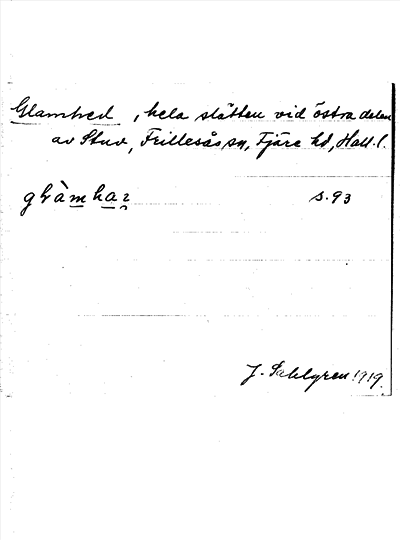 Glamhed, hela slätten vid östra delen
av Stuv, Frillesås sn, Fjäre hd, Hall. l.
s. 93
J. Sahlgren 1919.